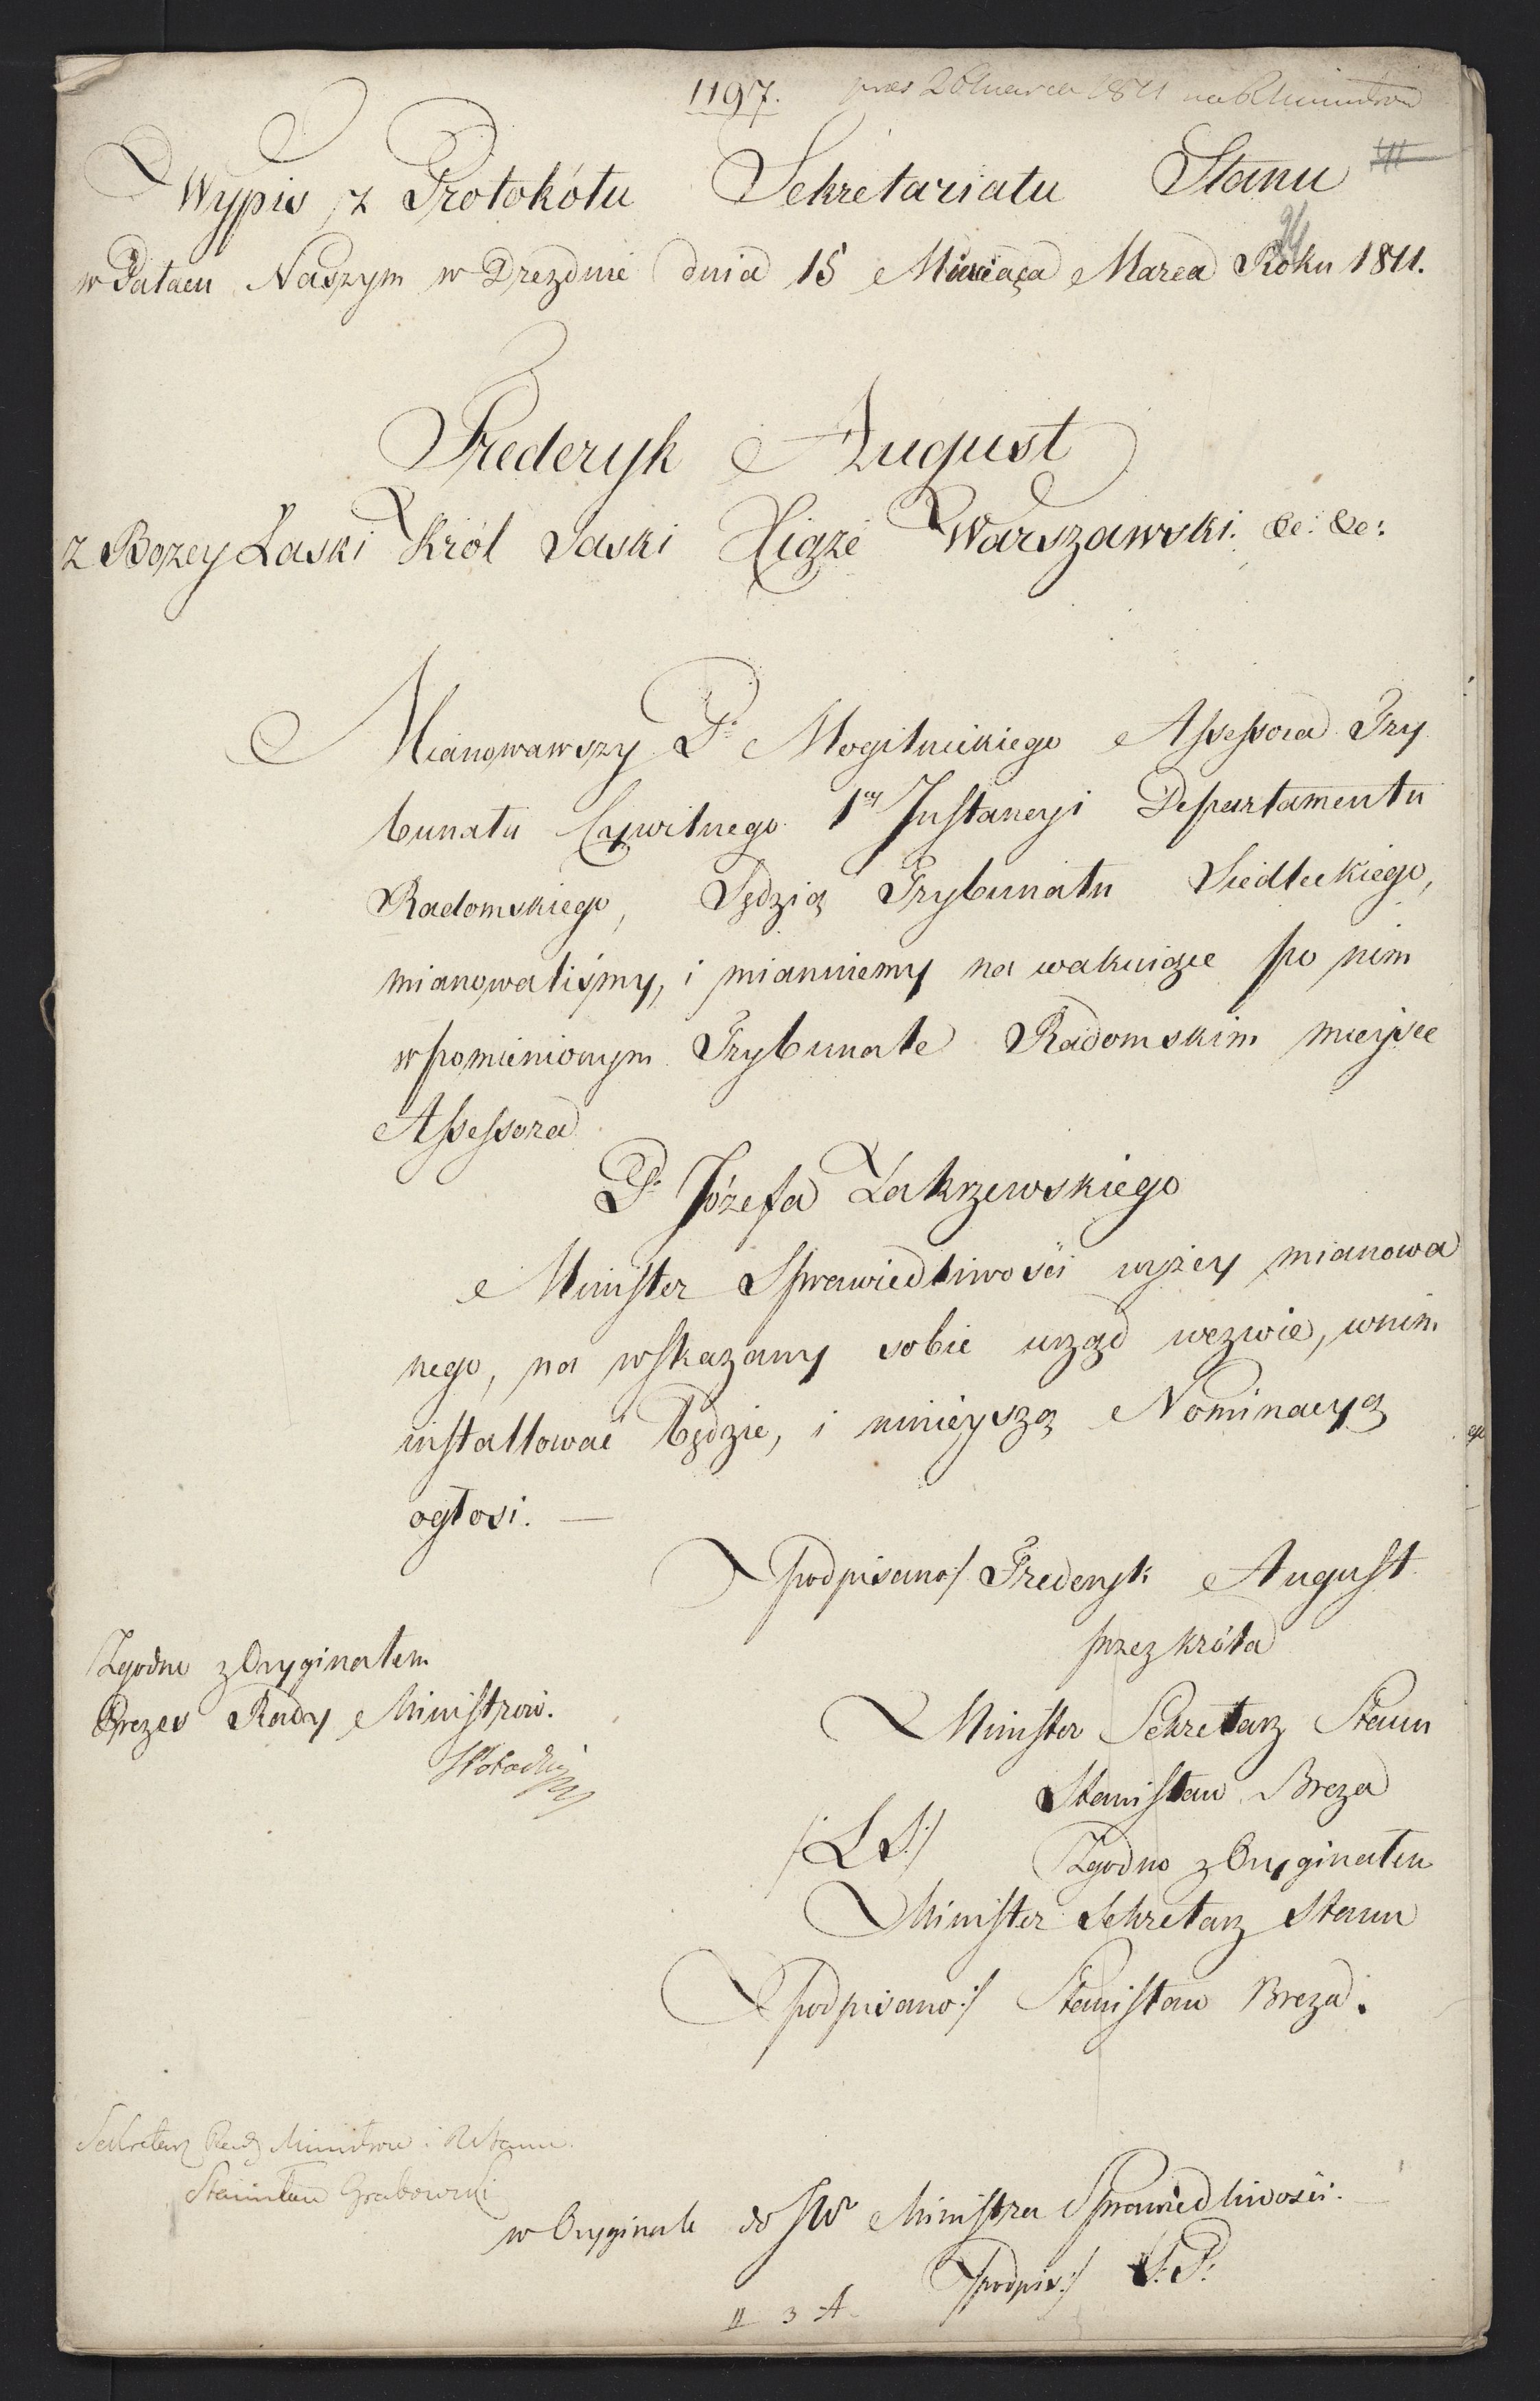 1197. pras 26 Marca 1811 na R Ministrów
Wypis z Protokółu Sekretariatu Stanu
w Pałacu Naszym w Dreznie dnia 15 Miesiąca Marca Roku 1811.
Frederyk August
z Bożey Łaski Król Saski Xiąże Warszawski. &c: &c:
Mianowawszy P. Mogilnickiego Assessora Try
bunału Cywilnego 1ey Instancyi Departamentu
Radomskiego, Sędzią Trybunału Siedleckiego,
mianowaliśmy, i mianuiemy na wakuiące po nim
w pomienionym Trybunale Radomskim mieysce
Assessora
P. Józefa Zakrzewskiego
Minister Sprawiedliwości wyżey mianowa
nego, na wskazany sobie urząd wezwie, w nim
installować będzie, i ninieyszą Nominacyą
ogłosi. —
podpisano/ Frederyk August
przez króla
Zgodno z Oryginałem
Prezes Rady Ministrów.
Minister Sekretarz Stanu
Stanisław Breza
/:L.S:/ Zgodno z Oryginałem
Minister Sekretarz Stanu
podpisano:/ Stanisław Breza.
Sekretarz Rady Ministrów i R Stanu.
Stanisław Grabowski
w Oryginale do JW Ministra Sprawiedliwości. —
/podpis:/ S: P:
II 3 A